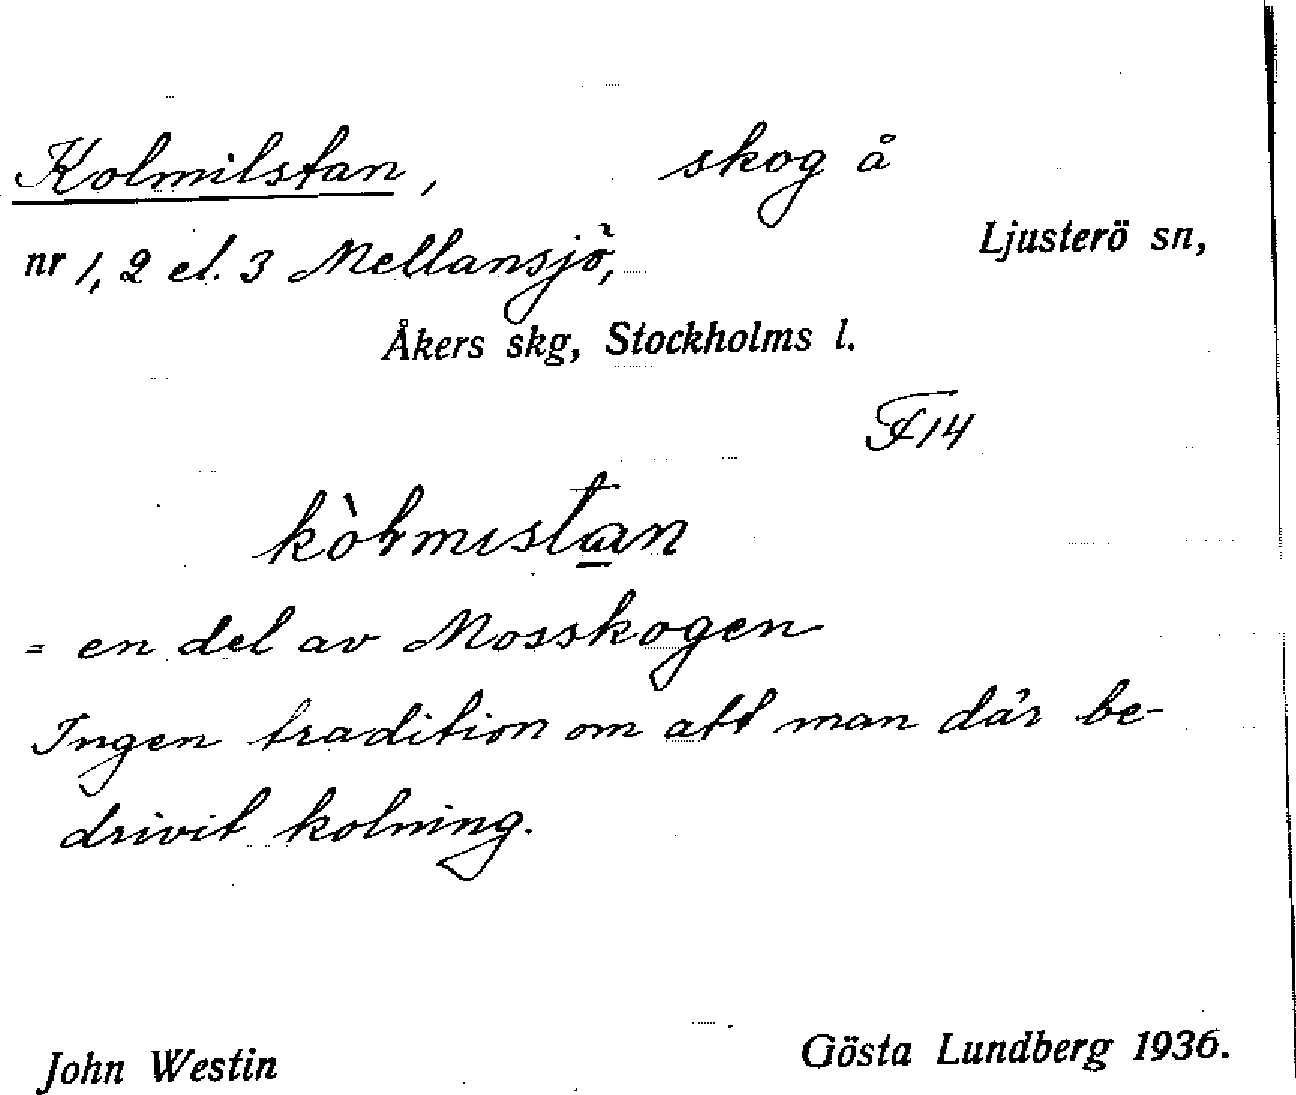 Kolmilstan, skog å
nr 1, 2 el. 3 Mellansjö, Ljusterö sn,
Åkers skg, Stockholms l.
F14
kòlmıstan
= en del av Mosskogen
Ingen tradition om att man där be-
drivit kolning.
John Westin Gösta Lundberg 1936.